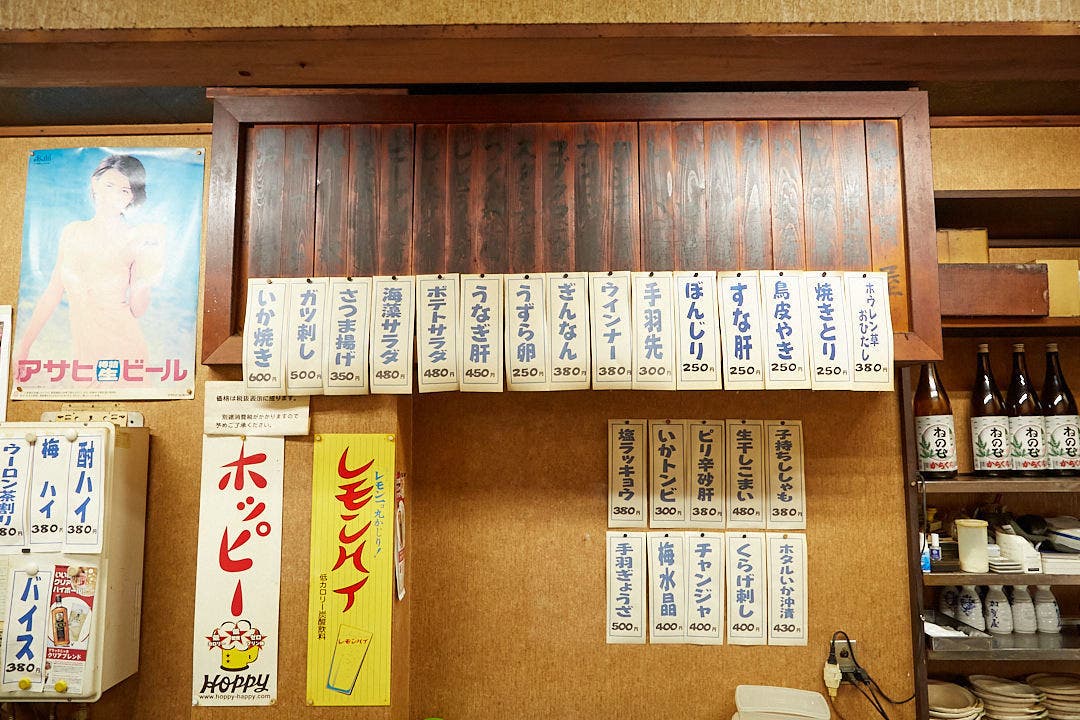 Asahi
アサヒ生ビール
ホウレン草おひたし
380円
焼きとり
250円
鳥皮やき
250円
すな肝
250円
ぼんじり
250円
手羽先
300円
ウインナー
380円
ぎんなん
380円
うずら卵
250円
うなぎ肝
450円
ポテトサラダ
480円
海藻サラダ
480円
さつま揚げ
350円
ガツ刺し
500円
いか焼き
600円
価格は税抜表示に成ります。
別途消費税がかかりますので
予めご了承ください。
子持ちししゃも
380円
生干しこまい
480円
ピリ辛砂肝
380円
いかトンビ
300円
塩ラッキョウ
380円
ホタルいか沖漬
430円
くらげ刺し
400円
チャンジャ
400円
梅水晶
400円
手羽ぎょうざ
500円
レモン一ヶ丸かじり!
レモンハイ
低カロリー炭酸飲料
レモンハイ
ホッピー
HOPPY
www.hoppy-happy.com
酎ハイ
380円
梅ハイ
380円
ウーロン茶割り
80円
バイス
380円
クリアブレンド
ねのひ
からくち
ねのひ
からくち
ねのひ
からくち
ねのひ
からくち